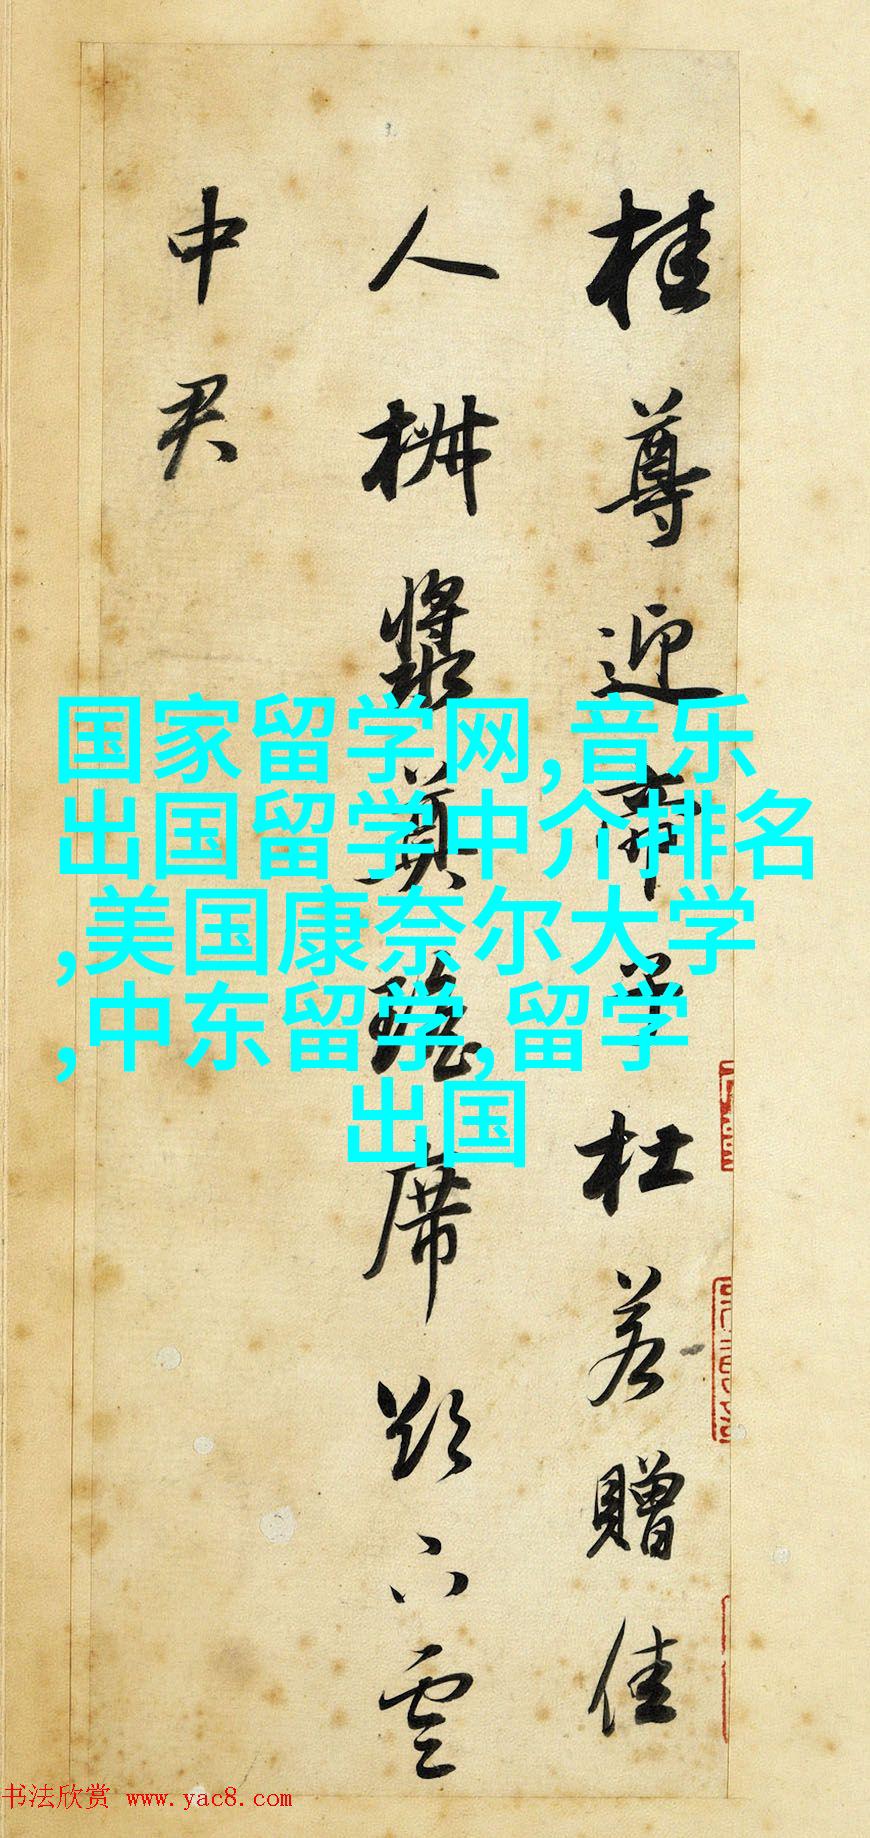 桂尊迎帝子杜若贈佳
人椒漿奠瑤席欲下雲
中君
国家留学网,音乐
出国留学中介排名
,美国康奈尔大学
,中东留学,留学
出国
书法欣赏 www.yac8.com